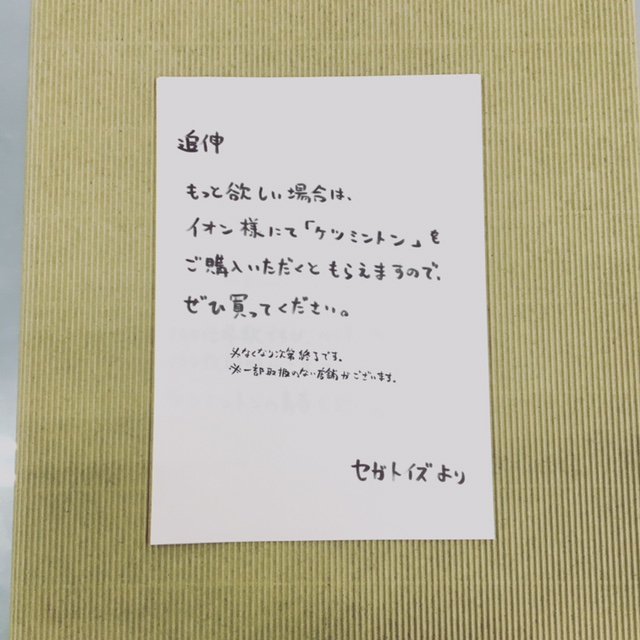 追伸
もっと欲しい場合は、
イオン様にて「ケツミントン」を
ご購入いただくともらえますので、
ぜひ買ってください。
※なくなり次第終了です。
※一部取扱のない店舗がございます。
セガトイズより